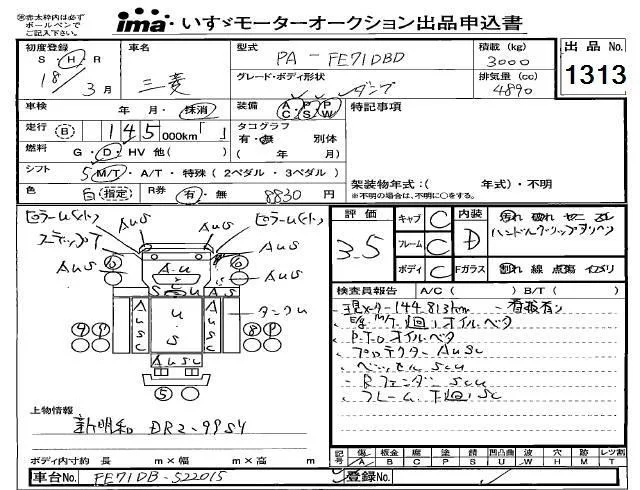 ※赤太枠内は必ずボールペンでご記入下さい。
ima いすゞモーターオークション出品申込書
初度登録 S・H・R 18/3月
車名 三菱
型式 PA-FE71DBD
グレード・ボディ形状 ダンプ
積載 (kg) 3000
排気量 (cc) 4890
出品 No. 1313
車検 年 月・抹消
走行 (B) 145 000km「 」
燃料 G・D・HV 他( )
シフト 5 M/T・A/T・特殊(2ペダル・3ペダル)
色 白(指定)
R券 有・無 8830円
装備 A/C・P/S・P/W
タコグラフ 有・無 別体
( 年 月)
特記事項
架装物年式:( 年式)・不明
※不明の場合は、不明に○をする。
ピラーU(小) AUS ピラーU(小)
ステップT
AUS AUS AUS AUS
6 6
A-U
AUSC U・S AUSC タンクU
4 4 8 P
AUSC
5
上物情報
新明和 DR2-99S4
ボディ内寸約 長 m×幅 m×高 m
車台No. FE71DB-522015
評価 3.5
キャブ C
フレーム C
ボディ C
内装 D
Fガラス
汚れ 破れ
割れ 線 点傷
検査員報告 A/C( ) B/T( )
現メーター144.813km 看板有り
E/G M/T 廻りオイルベタ
P.T.O オイルベタ
プロテクター AUSC
ベッセル SCU
Rフェンダー SCU
フレーム下廻り SC
記号 傷 A 板金 B 腐 C 塗 P 錆 S 凹凸曲 U 波 W 穴 H 跡 M レツ割 T
登録No.